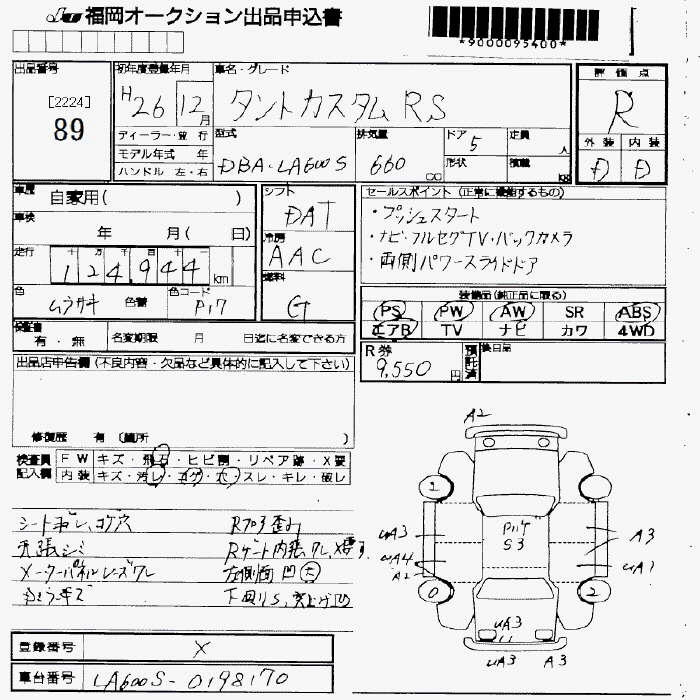 福岡オークション出品申込書
*9000095400*
出品番号
[2224]
89
初年度登録年月
H26 12月
車名・グレード
タントカスタムRS
評価点
R
外装 内装
D D
ディーラー・並行
モデル年式 年
ハンドル 左・右
型式
DBA-LA600S
排気量
660 CC
ドア 5
形状
定員 人
積載 kg
車歴 自家用( )
車検 年 月( 日)
走行
十 万 千 百 十 一
124,944 km
色 ムラサキ 色替
色コード P17
シフト
DAT
冷房
AAC
燃料
G
セールスポイント (正常に機能するもの)
・プッシュスタート
・ナビ・フルセグTV・バックカメラ
・両側パワースライドドア
装備品(純正品に限る)
PS PW AW SR ABS
エアB TV ナビ カワ 4WD
検査書 有・無
名変期限 月 日迄に名変できる方
R券
9,550円
預託済
後日品
出品店申告欄 (不良内容・欠品など具体的に記入して下さい)
修復歴 有 〔箇所 〕
検査員記入欄
FW キズ・飛石・ヒビ割・リペア跡・X要
内装 キズ・汚レ・コゲ・穴・スレ・キレ・破レ
シートヨゴレ、コゲ穴
天張シミ
メーターパネルレンズワレ
Rフロア歪み
Rゲート内張ワレ、X要す
左側面凹大
下回りS、突上げ凹
A2
1
0
2
P117ゲ
S3
UA3
UA4
A2
A3
UA1
UA3
UA3
A3
登録番号 X
車台番号 LA600S-0198170